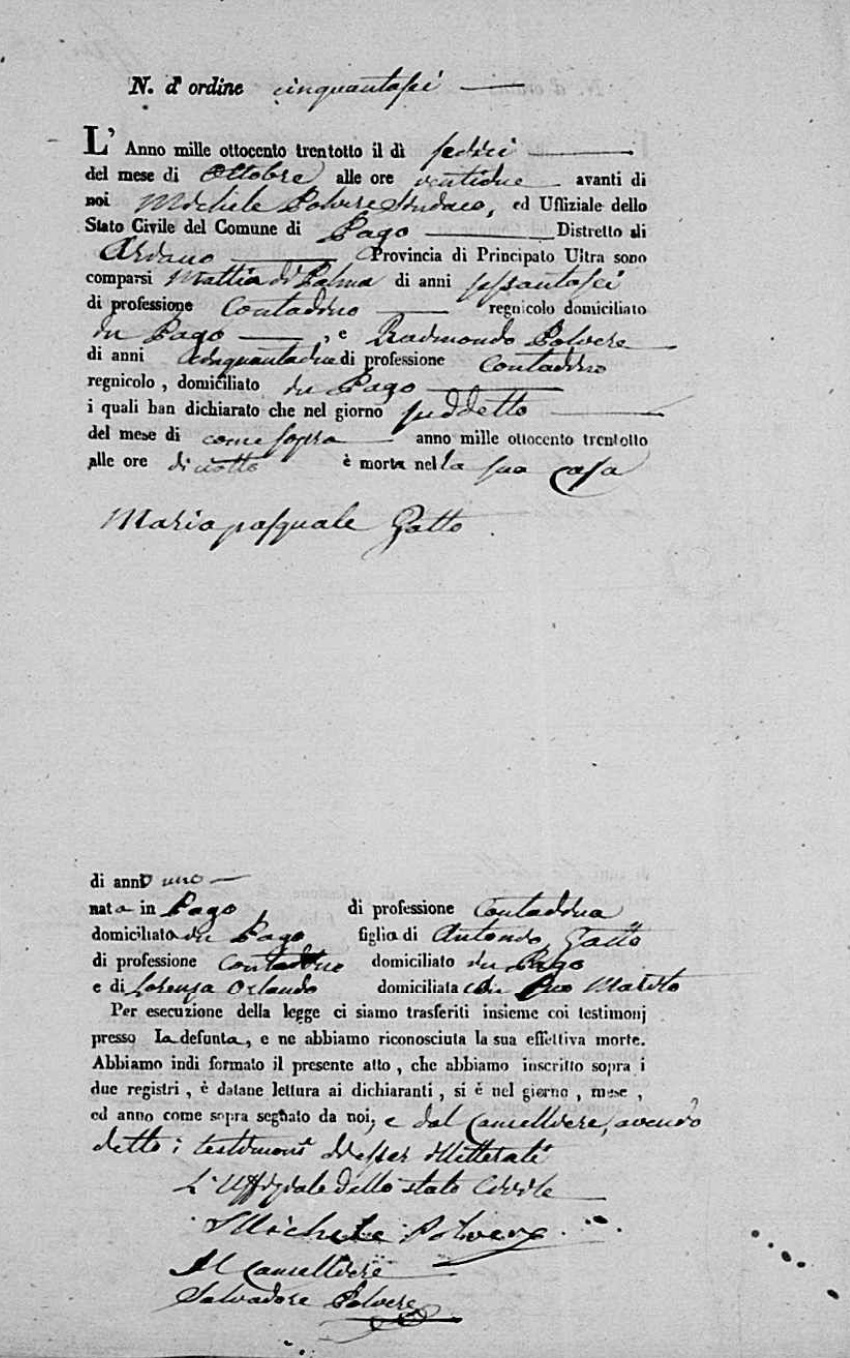 N. d'ordine cinquantasei
L' Anno mille ottocento trentotto il dì sedici
del mese di Ottobre alle ore ventidue avanti di
noi Michele Polvere Sindaco, ed Uffiziale dello
Stato Civile del Comune di Pago Distretto di
Ariano Provincia di Principato Ultra sono
comparsi Mattia di Palma di anni sessantasei
di professione Contadino regnicolo domiciliato
in Pago, e Raimondo Polvere
di anni cinquantadue di professione Contadino
regnicolo, domiciliato in Pago
i quali han dichiarato che nel giorno suddetto
del mese di come sopra anno mille ottocento trentotto
alle ore di notte è morta nella sua casa
Maria pasquale Gatto
di anno uno
nata in Pago, di professione Contadina
domiciliata in Pago figlia di Antonio Gatto
di professione Contadino domiciliato in Pago
e di Lorenza Orlando domiciliata Marito
Per esecuzione della legge ci siamo trasferiti insieme coi testimonj
presso la defunta, e ne abbiamo riconosciuta la sua effettiva morte.
Abbiamo indi formato il presente atto, che abbiamo inscritto sopra i
due registri, è datane lettura ai dichiaranti, si è nel giorno, mese,
ed anno come sopra segnato da noi, e dal Cancelliere, avendo
detto i testimoni d'esser illetterati
L'Uffiziale dello stato Civile
Michele Polvere
Il Cancelliere
Salvadore Polvere